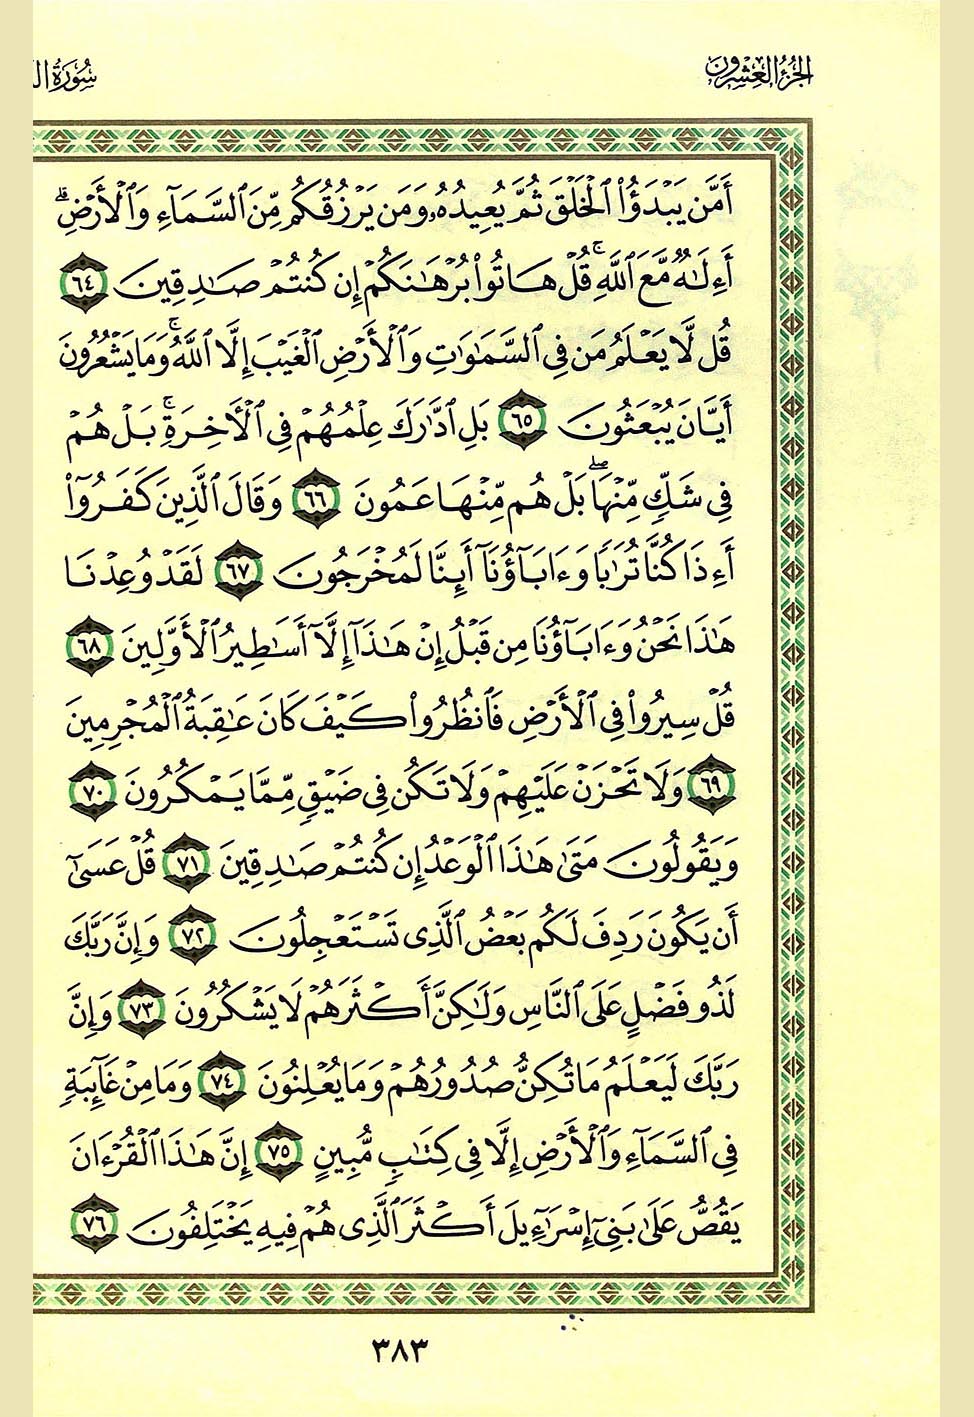 الجزء العشرون
سورة
أَمَّن يَبْدَؤُا۟ ٱلْخَلْقَ ثُمَّ يُعِيدُهُۥ وَمَن يَرْزُقُكُم مِّنَ ٱلسَّمَآءِ وَٱلْأَرْضِ ۗ
أَءِلَـٰهٌ مَّعَ ٱللَّهِ ۚ قُلْ هَاتُوا۟ بُرْهَـٰنَكُمْ إِن كُنتُمْ صَـٰدِقِينَ ٦٤
قُل لَّا يَعْلَمُ مَن فِى ٱلسَّمَـٰوَٰتِ وَٱلْأَرْضِ ٱلْغَيْبَ إِلَّا ٱللَّهُ ۚ وَمَا يَشْعُرُونَ
أَيَّانَ يُبْعَثُونَ ٦٥ بَلِ ٱدَّٰرَكَ عِلْمُهُمْ فِى ٱلْـَٔاخِرَةِ ۚ بَلْ هُمْ
فِى شَكٍّ مِّنْهَا ۖ بَلْ هُم مِّنْهَا عَمُونَ ٦٦ وَقَالَ ٱلَّذِينَ كَفَرُوٓا۟
أَءِذَا كُنَّا تُرَٰبًا وَءَابَآؤُنَآ أَئِنَّا لَمُخْرَجُونَ ٦٧ لَقَدْ وُعِدْنَا
هَـٰذَا نَحْنُ وَءَابَآؤُنَا مِن قَبْلُ إِنْ هَـٰذَآ إِلَّآ أَسَـٰطِيرُ ٱلْأَوَّلِينَ ٦٨
قُلْ سِيرُوا۟ فِى ٱلْأَرْضِ فَٱنظُرُوا۟ كَيْفَ كَانَ عَـٰقِبَةُ ٱلْمُجْرِمِينَ
٦٩ وَلَا تَحْزَنْ عَلَيْهِمْ وَلَا تَكُن فِى ضَيْقٍ مِّمَّا يَمْكُرُونَ ٧٠
وَيَقُولُونَ مَتَىٰ هَـٰذَا ٱلْوَعْدُ إِن كُنتُمْ صَـٰدِقِينَ ٧١ قُلْ عَسَىٰٓ
أَن يَكُونَ رَدِفَ لَكُم بَعْضُ ٱلَّذِى تَسْتَعْجِلُونَ ٧٢ وَإِنَّ رَبَّكَ
لَذُو فَضْلٍ عَلَى ٱلنَّاسِ وَلَـٰكِنَّ أَكْثَرَهُمْ لَا يَشْكُرُونَ ٧٣ وَإِنَّ
رَبَّكَ لَيَعْلَمُ مَا تُكِنُّ صُدُورُهُمْ وَمَا يُعْلِنُونَ ٧٤ وَمَا مِنْ غَآئِبَةٍ
فِى ٱلسَّمَآءِ وَٱلْأَرْضِ إِلَّا فِى كِتَـٰبٍ مُّبِينٍ ٧٥ إِنَّ هَـٰذَا ٱلْقُرْءَانَ
يَقُصُّ عَلَىٰ بَنِىٓ إِسْرَٰٓءِيلَ أَكْثَرَ ٱلَّذِى هُمْ فِيهِ يَخْتَلِفُونَ ٧٦
٣٨٣